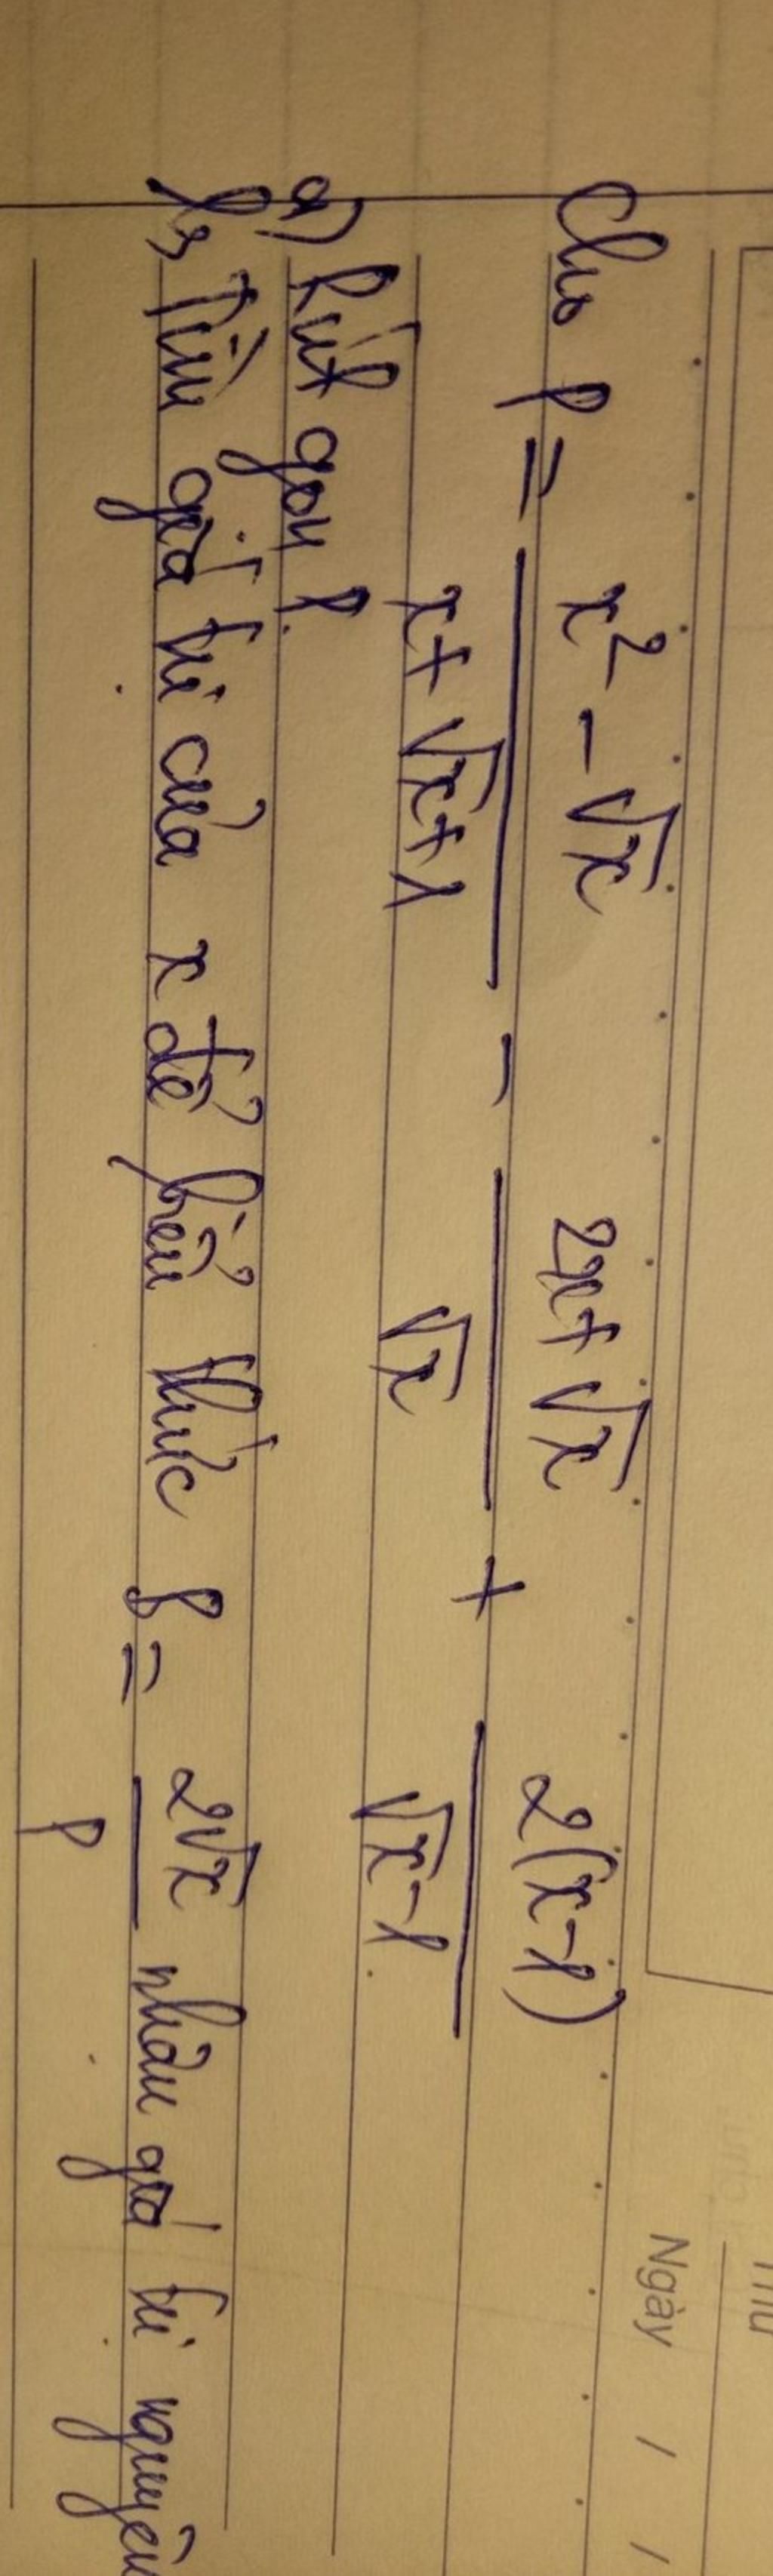 Ngày / /
Cho P = \frac{x² - √x}{x + √x + 1} - \frac{2x + √x}{√x} + \frac{2(x - 1)}{√x - 1}
a) Rút gọn P.
b, Tìm giá trị của x để biểu thức B = \frac{2√x}{P} nhận giá trị nguyên